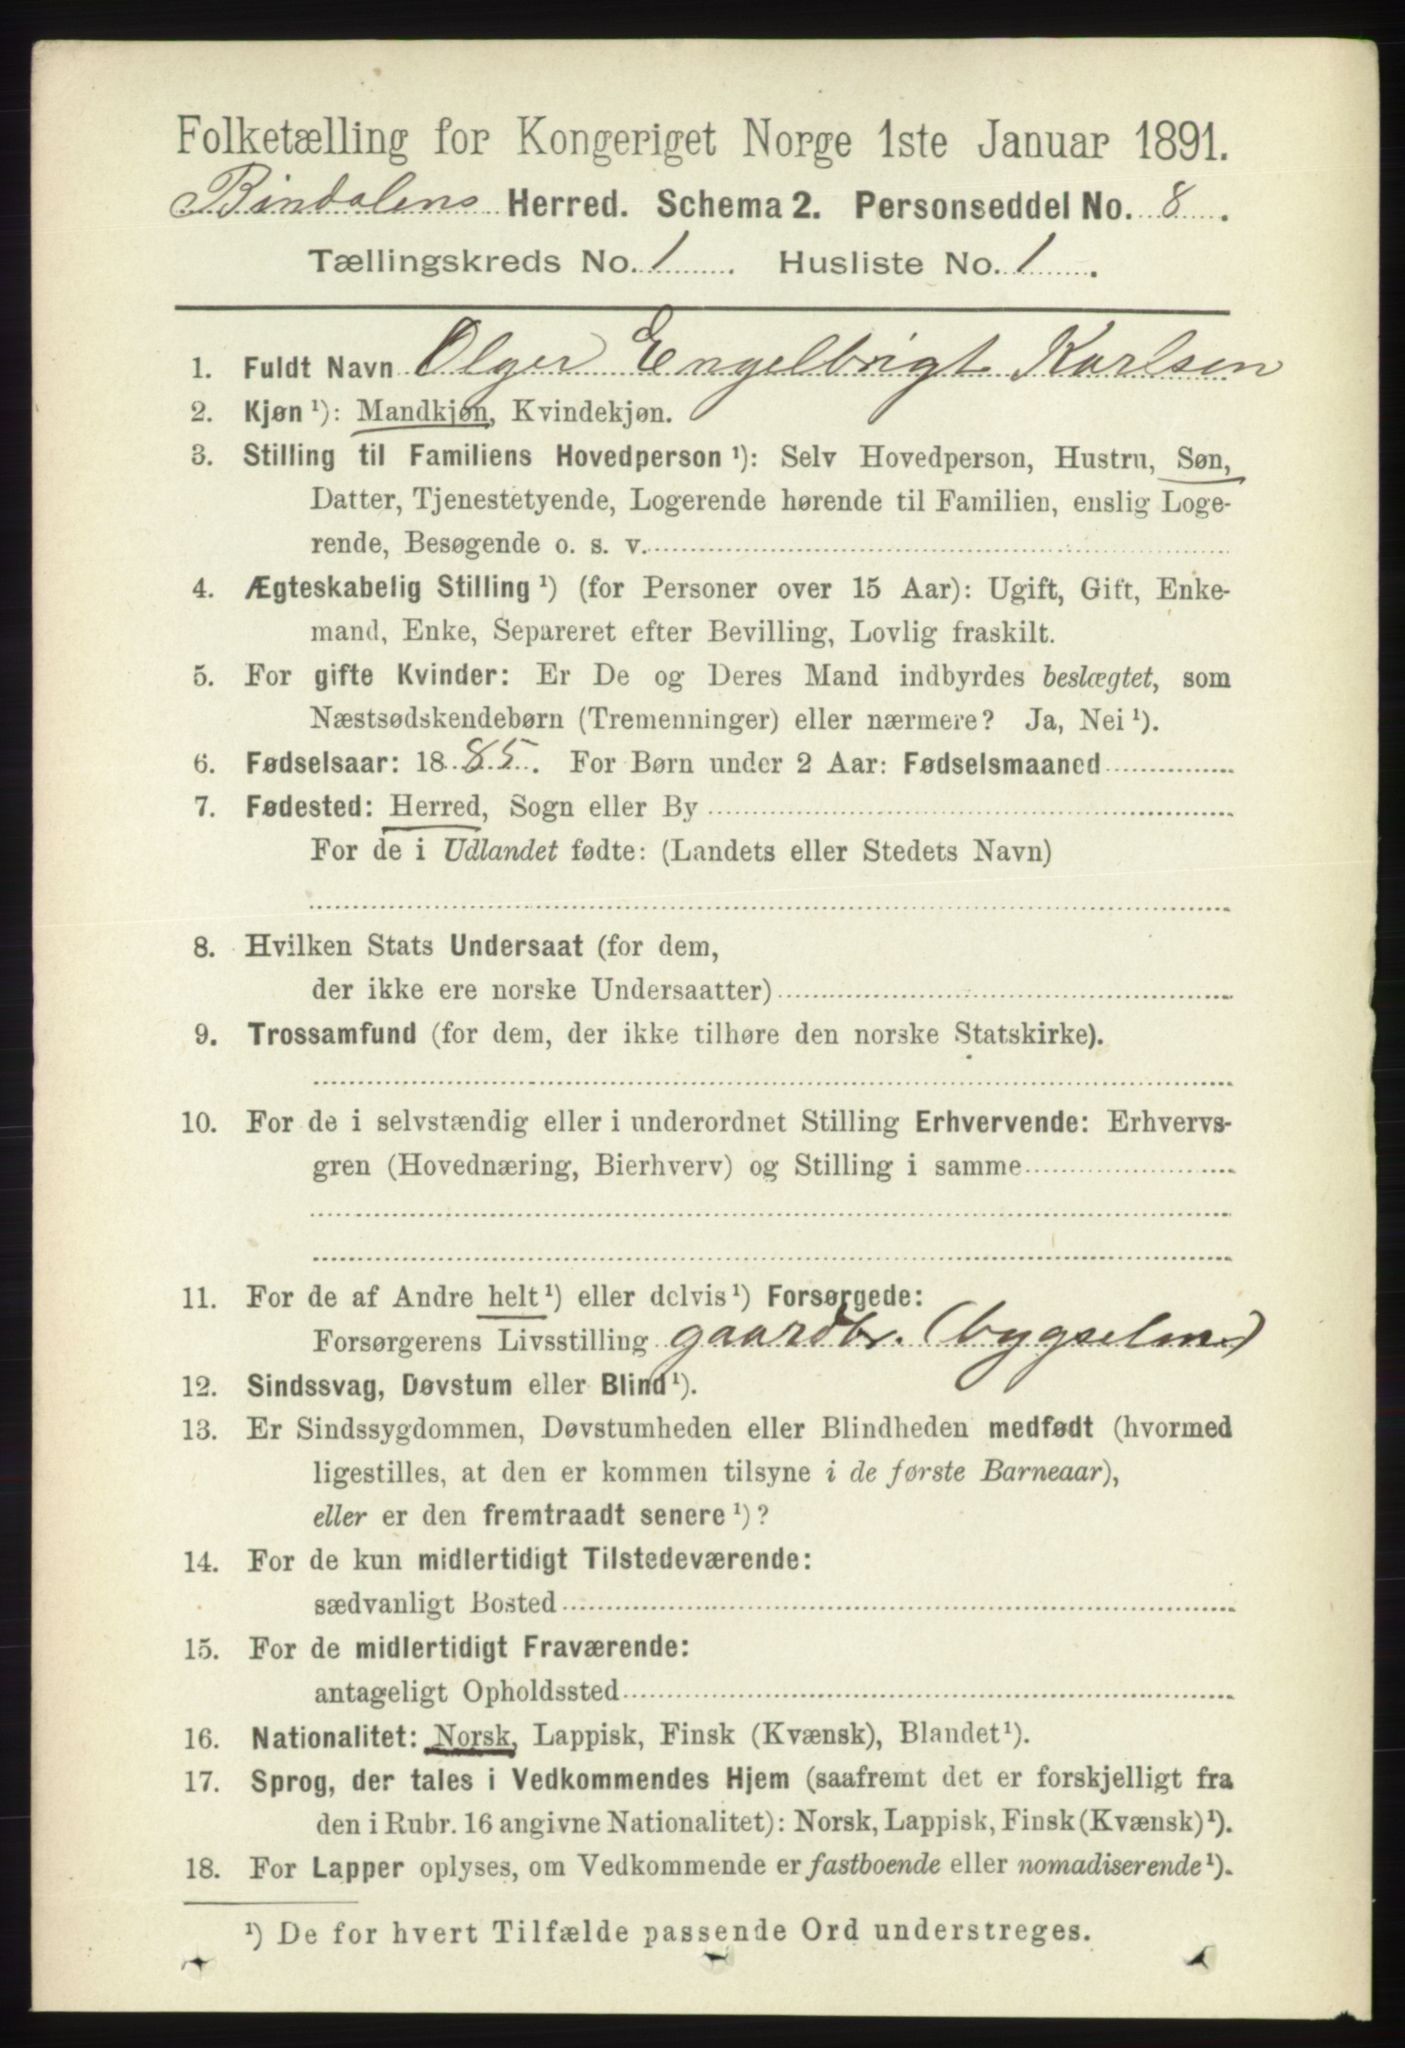 Folketælling for Kongeriget Norge 1ste Januar 1891.
Bindalens Herred. Schema 2. Personseddel No. 8.
Tællingskreds No. 1. Husliste No. 1.
1. Fuldt Navn Olger Engelbrigt Karlsen
2. Kjøn ¹): Mandkjøn, Kvindekjøn.
3. Stilling til Familiens Hovedperson ¹): Selv Hovedperson, Hustru, Søn,
Datter, Tjenestetyende, Logerende hørende til Familien, enslig Loge-
rende, Besøgende o. s. v.
4. Ægteskabelig Stilling ¹) (for Personer over 15 Aar): Ugift, Gift, Enke-
mand, Enke, Separeret efter Bevilling, Lovlig fraskilt.
5. For gifte Kvinder: Er De og Deres Mand indbyrdes beslægtet, som
Næstsødskendebørn (Tremenninger) eller nærmere? Ja, Nei ¹).
6. Fødselsaar: 1885. For Børn under 2 Aar: Fødselsmaaned
7. Fødested: Herred, Sogn eller By
For de i Udlandet fødte: (Landets eller Stedets Navn)
8. Hvilken Stats Undersaat (for dem,
der ikke ere norske Undersaatter)
9. Trossamfund (for dem, der ikke tilhøre den norske Statskirke).
10. For de i selvstændig eller i underordnet Stilling Erhvervende: Erhvervs-
gren (Hovednæring, Bierhverv) og Stilling i samme
11. For de af Andre helt ¹) eller delvis ¹) Forsørgede:
Forsørgerens Livsstilling gaardbr. (bygselm)
12. Sindssvag, Døvstum eller Blind ¹).
13. Er Sindssygdommen, Døvstumheden eller Blindheden medfødt (hvormed
ligestilles, at den er kommen tilsyne i de første Barneaar),
eller er den fremtraadt senere ¹)?
14. For de kun midlertidigt Tilstedeværende:
sædvanligt Bosted
15. For de midlertidigt Fraværende:
antageligt Opholdssted
16. Nationalitet: Norsk, Lappisk, Finsk (Kvænsk), Blandet ¹).
17. Sprog, der tales i Vedkommendes Hjem (saafremt det er forskjelligt fra
den i Rubr. 16 angivne Nationalitet): Norsk, Lappisk, Finsk (Kvænsk) ¹).
18. For Lapper oplyses, om Vedkommende er fastboende eller nomadiserende ¹).
¹) De for hvert Tilfælde passende Ord understreges.